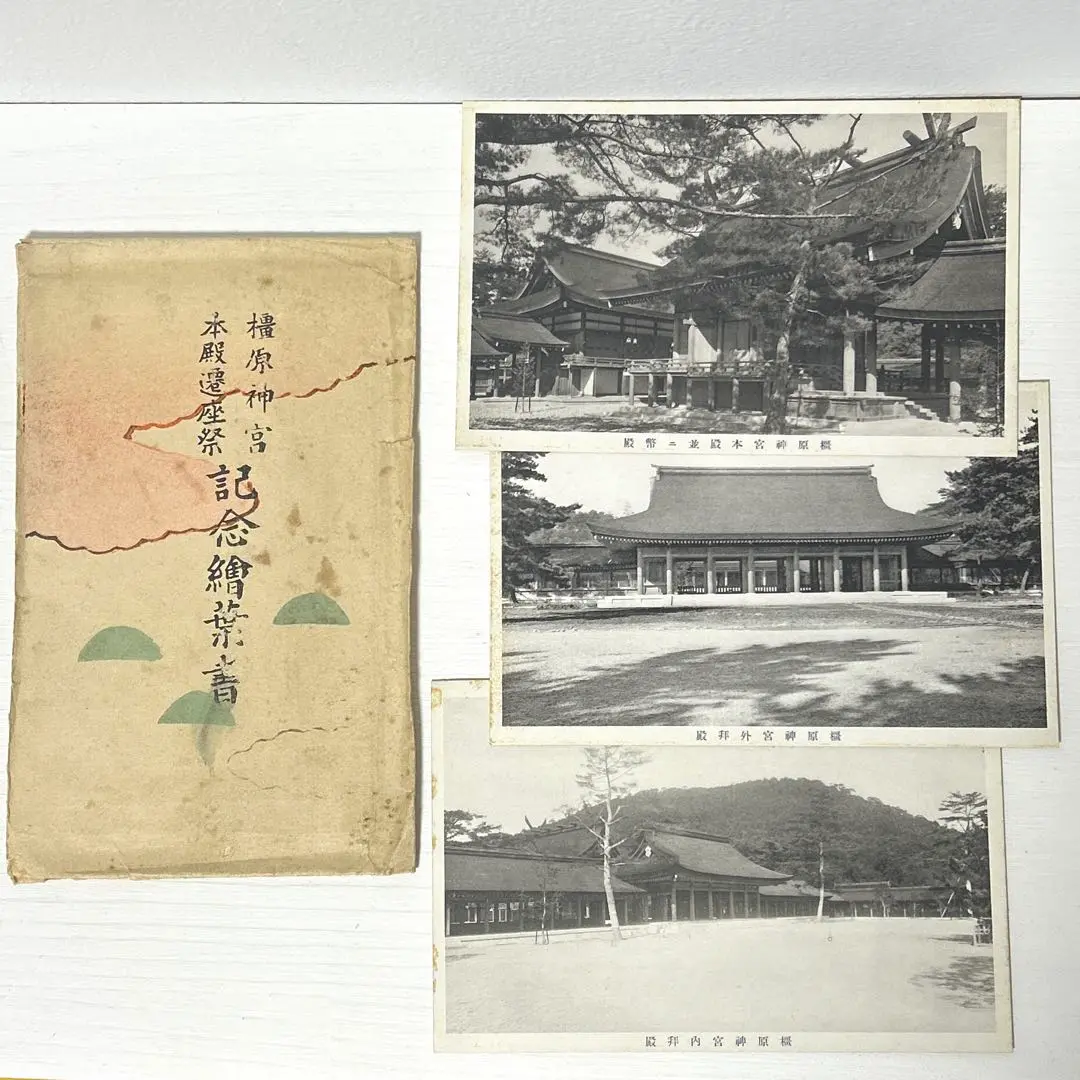 橿原神宮
本殿遷座祭
記念繪葉書
橿原神宮本殿並ニ幣殿
橿原神宮外拜殿
橿原神宮內拜殿